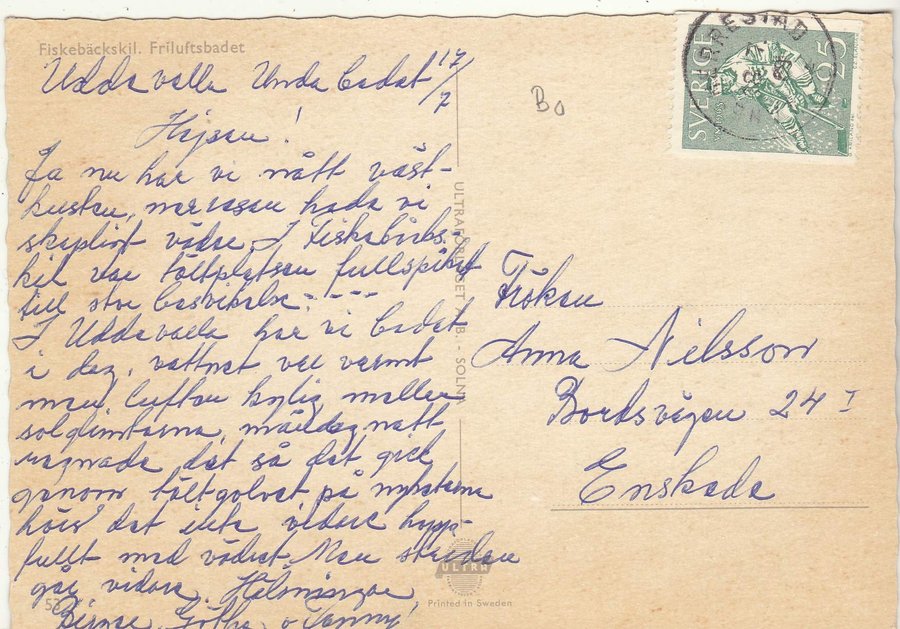 Fiskebäckskil. Friluftsbadet
Uddevalla Unda badet 17/7
Hejsan!
Ja nu har vi nått väst-
kusten, men resan hade vi
skapligt väder. I Fiskebäcks-
kil var tältplatsen fullspikat
till stor besvikelse - - - -
I Uddevalla har vi badat
i dag, vattnet var varmt
men luften kylig mellan
solglimtarna, måndag natt
regnade det så det gick
genom tältgolvet på nyheterna
hörs det inte vidare hopp-
fullt med vädret. Men
går vidare. Hälsningar
Birger, Götha o Fanny!
ULTRAFÖRLAGET A.B. - SOLNA
Bo
SVERIGE 25
RRESTAD
Fröken
Anna Nilsson
Bordsvägen 24 I
Enskede
ULTRA
Printed in Sweden